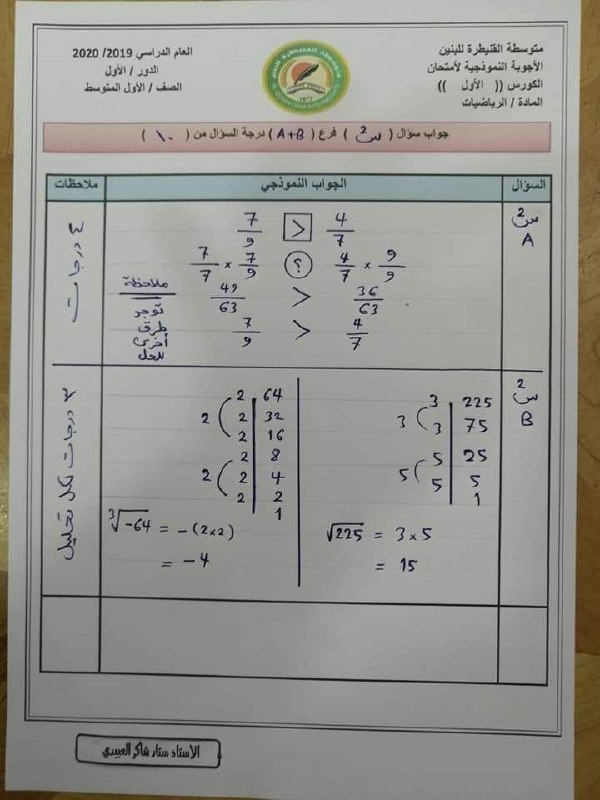 متوسطة القليطرة للبنين
الأجوبة النموذجية لأمتحان
الكورس (( الأول ))
المادة / الرياضيات
العام الدراسي 2019/ 2020
الدور / الأول
الصف / الأول المتوسط
جواب سؤال ( س2 ) فرع ( A+B ) درجة السؤال من ( ١٠ )
السؤال الجواب النموذجي ملاحظات
س2
A
7/9 > 4/7
7/7 × 7/9 ؟ 4/7 × 9/9
49/63 > 36/63
7/9 > 4/7
ملاحظة
توجد
طرق
أخرى
للحل
٤ درجات
س2
B
3 225
3 3 75
5 25
5 5 5
1
√225 = 3 × 5
= 15
2 64
2 2 32
2 16
2 8
2 2 4
2 2
1
3√-64 = -(2×2)
= -4
٣ درجات لكل تحليل
الأستاذ ستار شاكر العبيدي